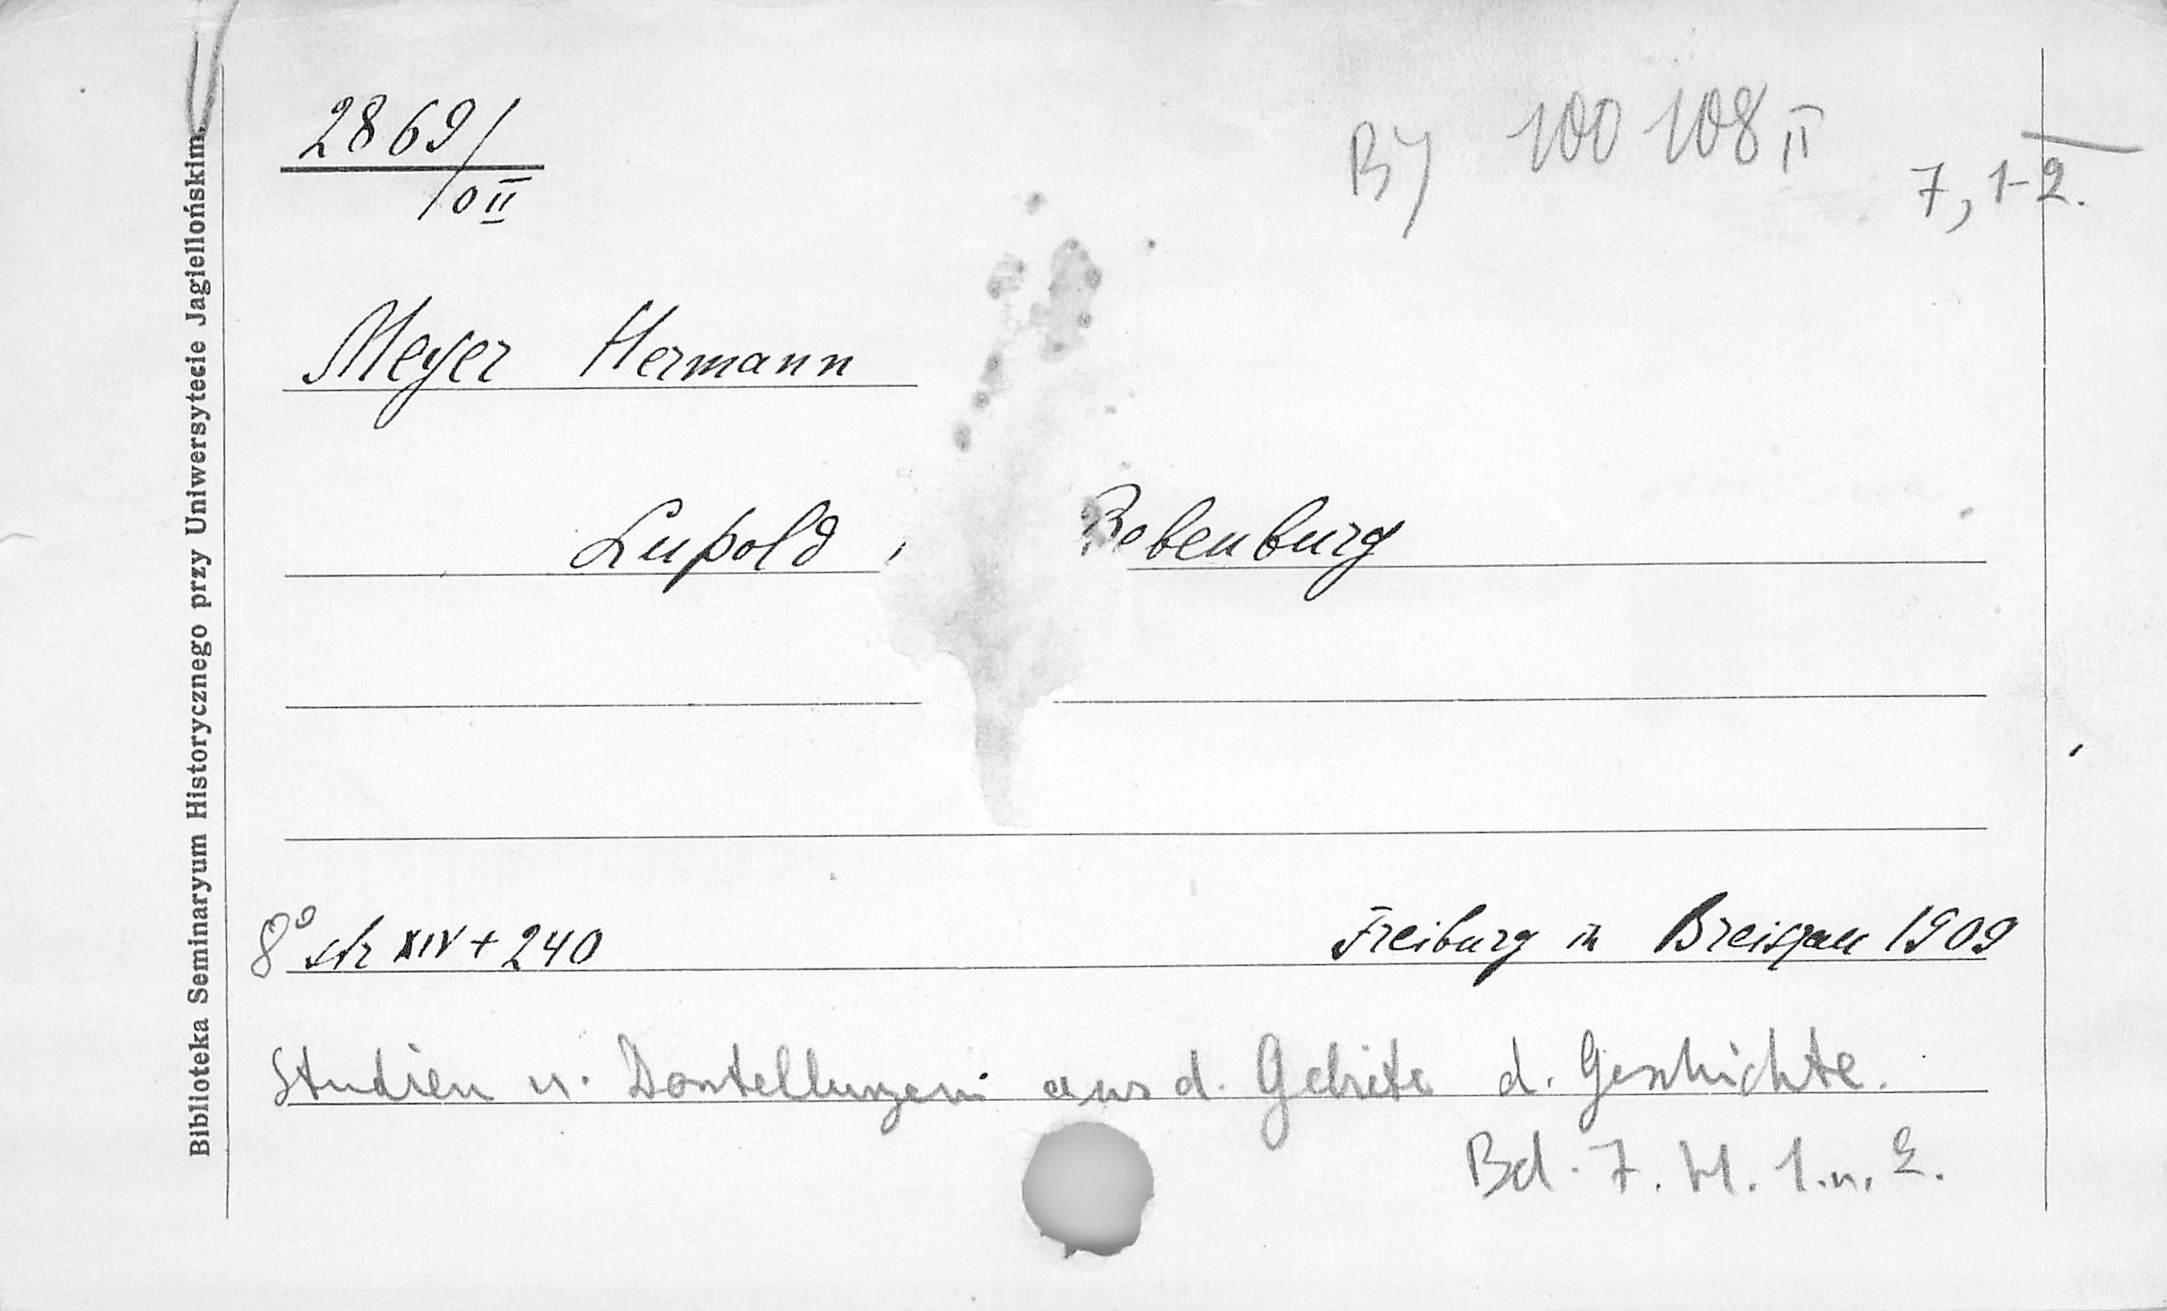 2869/
/0 II
By 100 108 II
7, 1-2.
Meyer Hermann
Lupold Bebenburg
8° str XIV + 240
Freiburg in Breisgau 1909
Studien u. Darstellungen aus d. Gebiete d. Geschichte.
Bd. 7. H. 1. u. 2.
Biblioteka Seminaryum Historycznego przy Uniwersytecie Jagiellońskim.